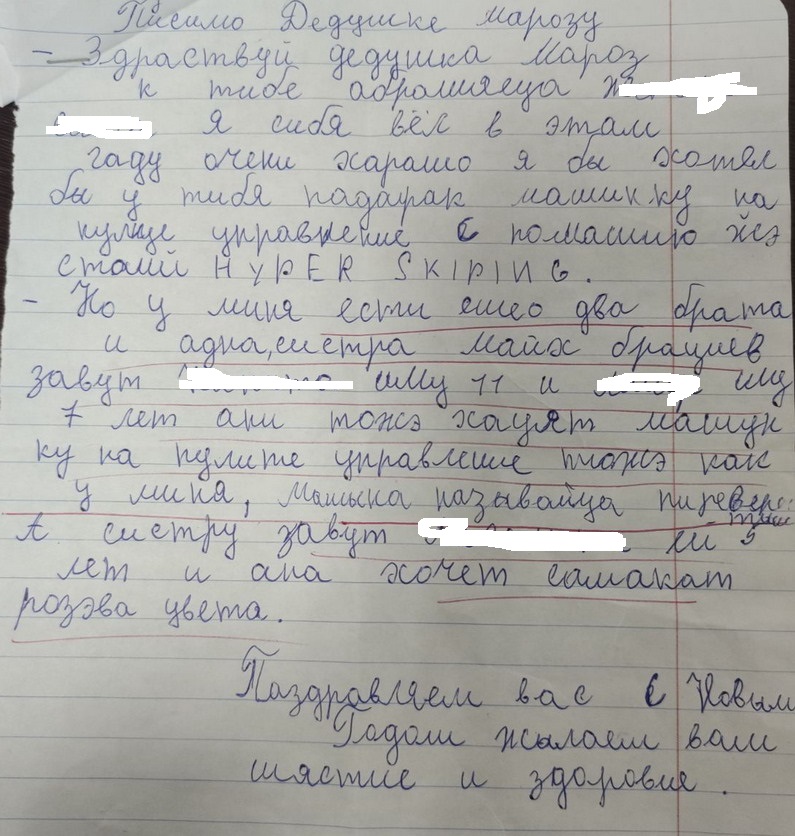 Письмо Дедушке марозу
– Здраствуй дедушка Мароз
к тибе абращяеца
Я сибя вёл в этам
гаду очени харашо я бы хотел
бы у тибя падарак машинку на
кулце управнение с помащию йсэ
сталй HYPER SKIPING.
– Но у миня ести ешео два брата
и адна, систра майх брациев
завут ему 11 и иму
7 лет ани тожэ хацят машун
ку на пулите управление тожэ как
у миня, Машына называйца пиревер
тыш
А систру завут ей 5
лет и ана хочет самакат
розэва цвета.
Паздравляем вас с Новым
Годам жылаем вам
щястие и здоровие.